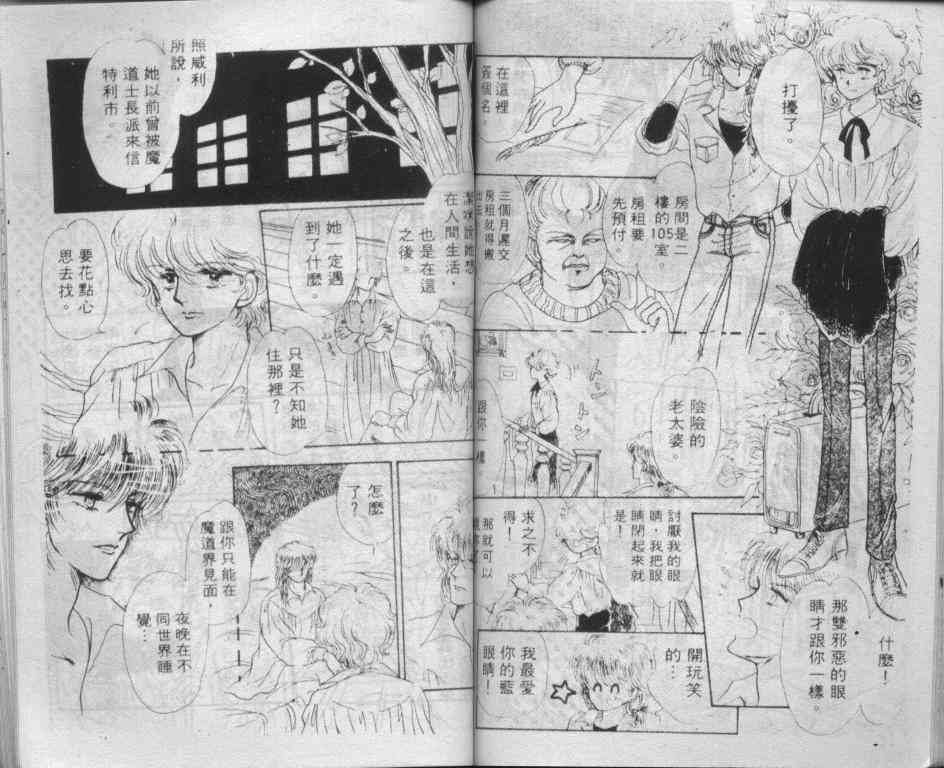 打擾了。
在這裡
簽個名。
房間是二
樓的105
室。
房租要
先預付。
三個月遲交
房租就得搬
陰險的
老太婆。
トン
トン
跟你一樣
什麼！
那雙邪惡的眼
睛才跟你一樣。
討厭我的眼
睛，我把眼
睛閉起來就
是！
求之不
得！
那就可以
開玩笑
的…
我最愛
你的藍
眼睛！
照威利
所說，
她以前曾被魔
道士長派來信
特利市。
潔咪說她想
在人間生活，
也是在這
之後。
她一定遇
到了什麼。
要花點心
思去找。
只是不知她
住那裡？
怎麼
了？
跟你只能在
魔道界見面，
夜晚在不
同世界睡
覺…